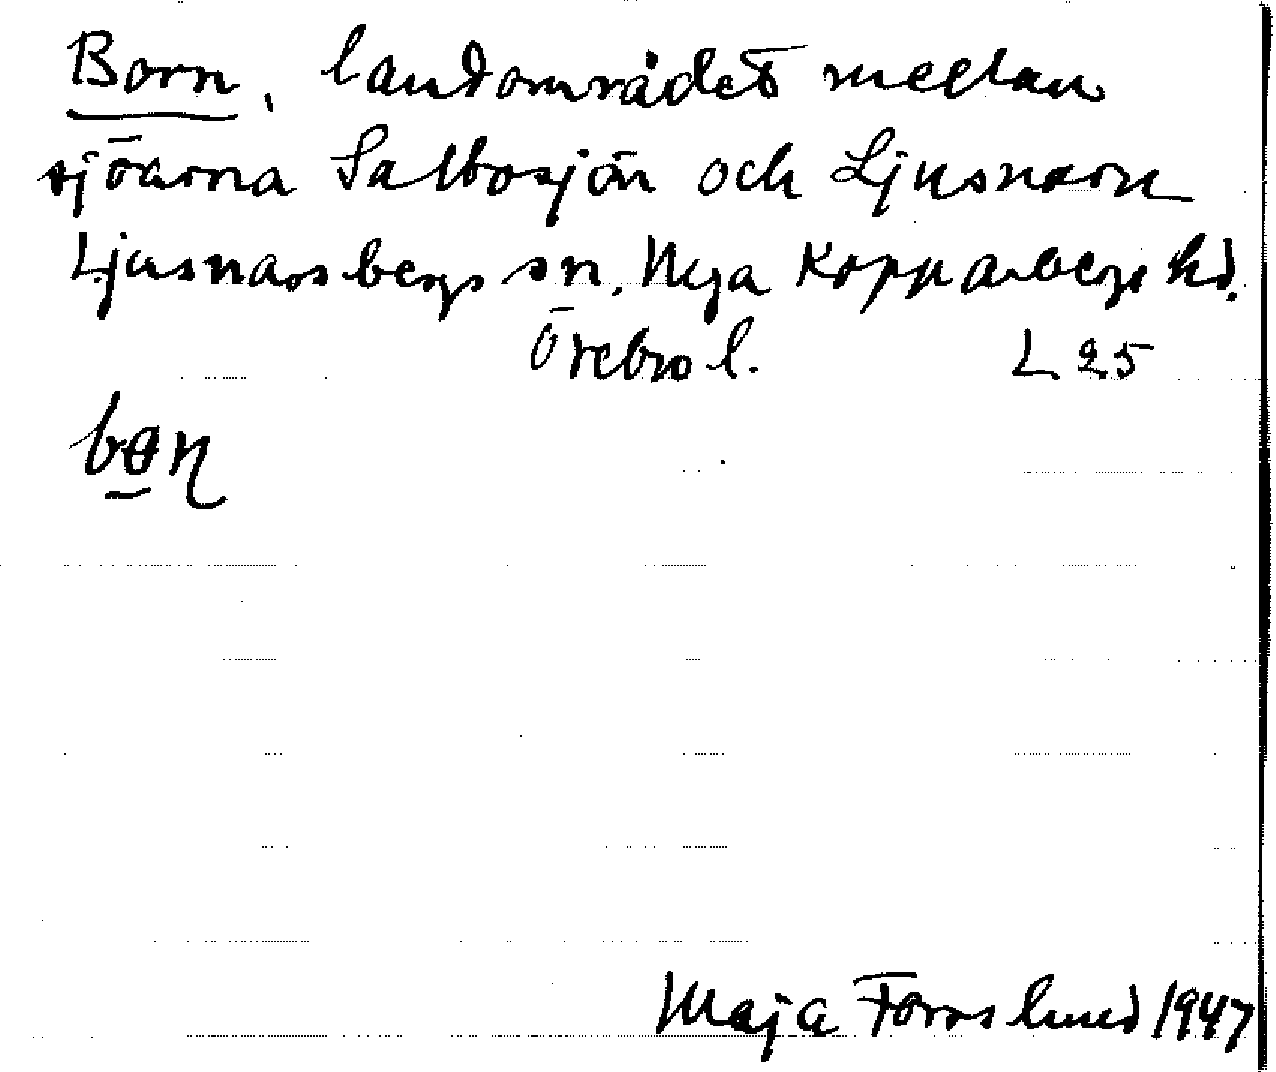 Born, landområdet mellan
sjöarna Salbosjön och Ljusnaren
Ljusnarsbergs sn. Nya Kopparbergs hd.
Örebro l. L 25
bɵɳ
Maja Forsslund 1947